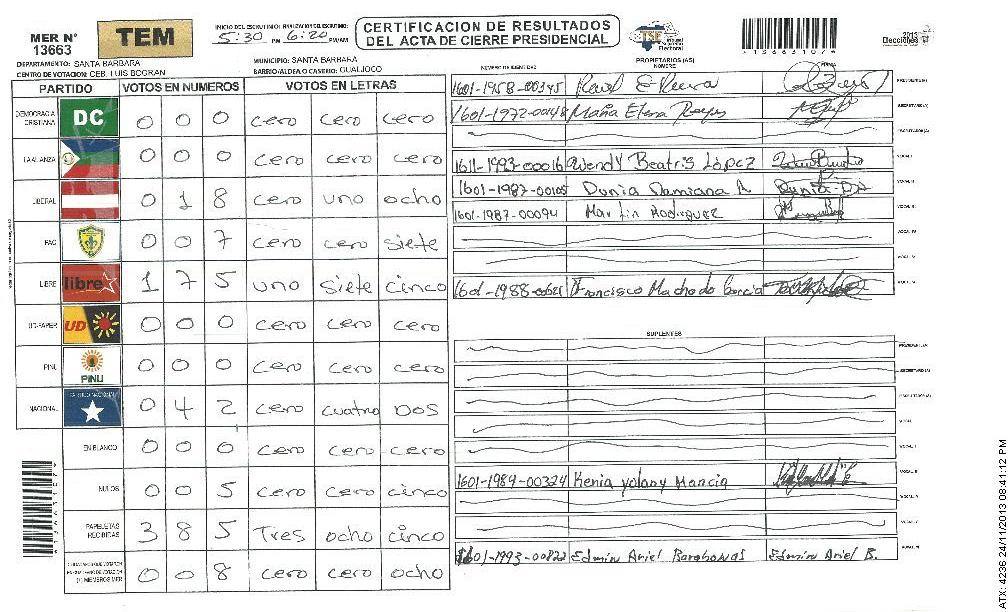 MER N°
13663
TEM
INICIO DEL ESCRUTINIO: FINALIZACION DEL ESCRUTINIO:
5:30 PM 6:20 PM/AM
CERTIFICACION DE RESULTADOS
DEL ACTA DE CIERRE PRESIDENCIAL
TSE
Tribunal Supremo Electoral
2013
Elecciones
DEPARTAMENTO: SANTA BARBARA
MUNICIPIO: SANTA BARBARA
CENTRO DE VOTACION: CEB. LUIS BOGRAN
BARRIO/ALDEA O CASERIO: GUALJOCO
PARTIDO VOTOS EN NUMEROS VOTOS EN LETRAS
DEMOCRACIA CRISTIANA DC 0 0 0 cero cero cero
LA ALIANZA 0 0 0 cero cero cero
LIBERAL 0 1 8 cero uno ocho
PAC 0 0 7 cero cero siete
LIBRE libre 1 7 5 uno siete cinco
UD-FAPER UD 0 0 0 cero cero cero
PINU PINU 0 0 0 cero cero cero
NACIONAL PARTIDO NACIONAL 0 4 2 cero cuatro DOS
EN BLANCO 0 0 0 cero cero cero
NULOS 0 0 5 cero cero cinco
PAPELETAS RECIBIDAS 3 8 5 Tres ocho cinco
0 0 8 cero cero ocho
PROPIETARIOS (AS)
NUMERO DE IDENTIDAD NOMBRE FIRMA
1601-1958-00345 PRESIDENTE(A)
1601-1972-00148 Maria Elena Reyes SECRETARIO(A)
ESCRUTADOR(A)
1611-1993-00016 Wendy Beatris López VOCAL I
1601-1987-00105 Dunia Damiana VOCAL II
1601-1987-00094 Martin Rodriguez VOCAL III
VOCAL IV
VOCAL V
1601-1988-00621 Francisco Machado Garcia
SUPLENTES
PRESIDENTE(A)
SECRETARIO(A)
ESCRUTADOR(A)
VOCAL I
1601-1989-00324 Kenia yolany Mancia
1601-1993-00822 Edwin Ariel Barahonas Edwin Ariel B.
ATX: 4236 24/11/2013 08:41:12 PM